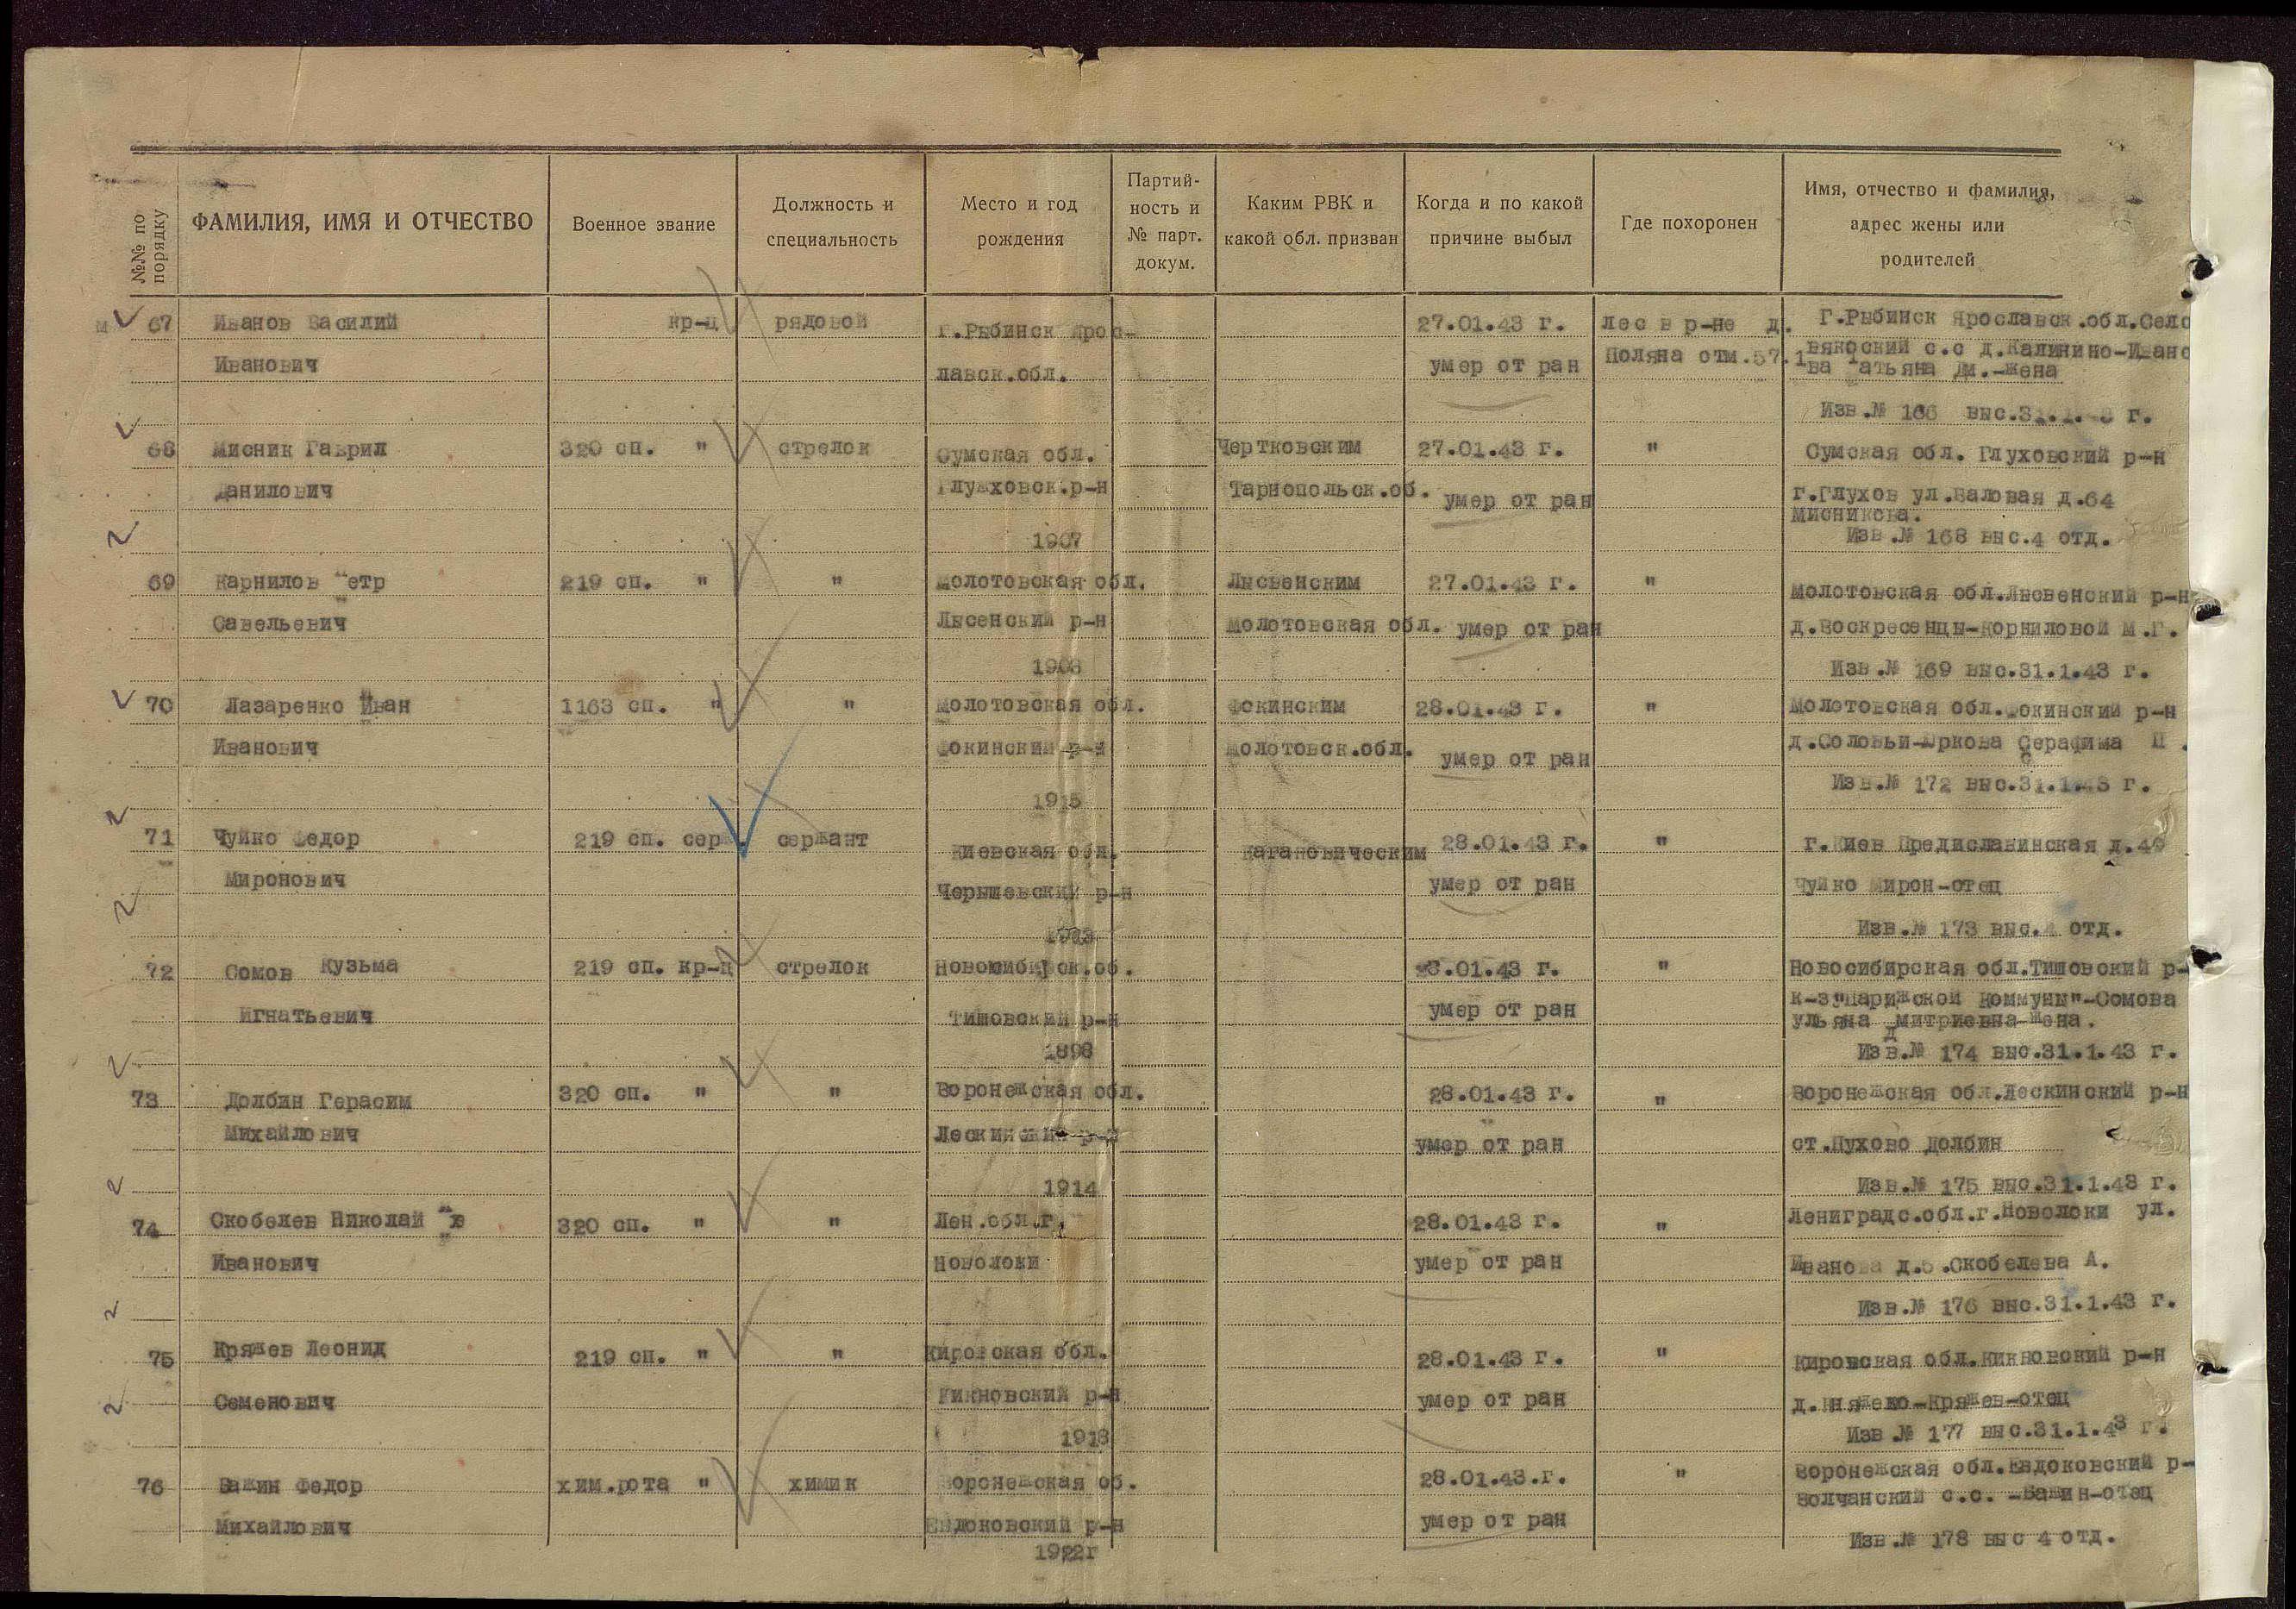 №№ по порядку
ФАМИЛИЯ, ИМЯ И ОТЧЕСТВО
Военное звание
Должность и специальность
Место и год рождения
Партий-ность и № парт. докум.
Каким РВК и какой обл. призван
Когда и по какой причине выбыл
Где похоронен
Имя, отчество и фамилия, адрес жены или родителей
67 Иванов Василий кр-ц рядовой г.Рыбинск Ярос- 27.01.43 г. лес в р-не д. Г.Рыбинск Ярославск.обл.Село
Иванович лавск.обл. умер от ран Поляна отм.57.1 вякоский с.с д.Калинино-Ивано
ва Татьяна Дм.-жена
Изв.№ 166 выс.31.1. г.
68 Мисник Гаврил 320 сп. " стрелок Сумская обл. Чертковским 27.01.43 г. " Сумская обл. Глуховский р-н
Данилович Глуховск.р-н Тарнопольск.об. умер от ран г.Глухов ул.Валовая д.64
Мисникова.
1907 Изв.№ 168 выс.4 отд.
69 Карнилов Петр 219 сп. " " Молотовская обл. Лысвенским 27.01.43 г. " Молотовская обл.Лысвенский р-н
Савельевич Лысенский р-н Молотовская обл. умер от ран д.Воскресенцы-Корниловой М.Г.
1908 Изв.№ 169 выс.31.1.43 г.
70 Лазаренко Иван 1163 сп. " " Молотовская обл. Фокинским 28.01.43 г. " Молотовская обл.Фокинский р-н
Иванович Фокинский р-н Молотовск.обл. умер от ран д.Соловьи-Юркова Серафима П.
1915 Изв.№ 172 выс.31.1.43 г.
71 Чуйко Федор 219 сп. серж. сержант Киевская обл. Кагановическим 28.01.43 г. " г.Киев Предиславинская д.40
Миронович Черышевский р-н умер от ран Чуйко Мирон-отец
Изв.№ 173 выс.4 отд.
72 Сомов Кузьма 219 сп. кр-ц стрелок Новосибирск.об. 28.01.43 г. " Новосибирская обл.Тишовский р-
Игнатьевич Тишовский р-н умер от ран к-з"Парижской Коммуны"-Сомова
Ульяна Дмитриевна-жена.
1898 Изв.№ 174 выс.31.1.43 г.
73 Долбин Герасим 320 сп. " " Воронежская обл. 28.01.43 г. " Воронежская обл.Лескинский р-н
Михайлович Лескинский р-н умер от ран ст.Пухово Долбин
1914 Изв.№ 175 выс.31.1.43 г.
74 Скобелев Николай 320 сп. " " Лен.обл.г. 28.01.43 г. " Лениградс.обл.г.Новолоки ул.
Иванович Новолоки умер от ран Иванова д. .Скобелева А.
Изв.№ 176 выс.31.1.43 г.
75 Кряжев Леонид 219 сп. " " Кировская обл. 28.01.43 г. " Кировская обл.Кикновский р-н
Семенович Кикновский р-н умер от ран д.Княжево-Кряжев-отец
1918 Изв № 177 выс.31.1.43 г.
76 Бажин Федор хим.рота " химик Воронежская об. 28.01.43.г. " Воронежская обл.Евдоковский р-
Михайлович Евдоковский р-н умер от ран Волчанский с.с. -Бажин-отец
1922г Изв.№ 178 выс 4 отд.